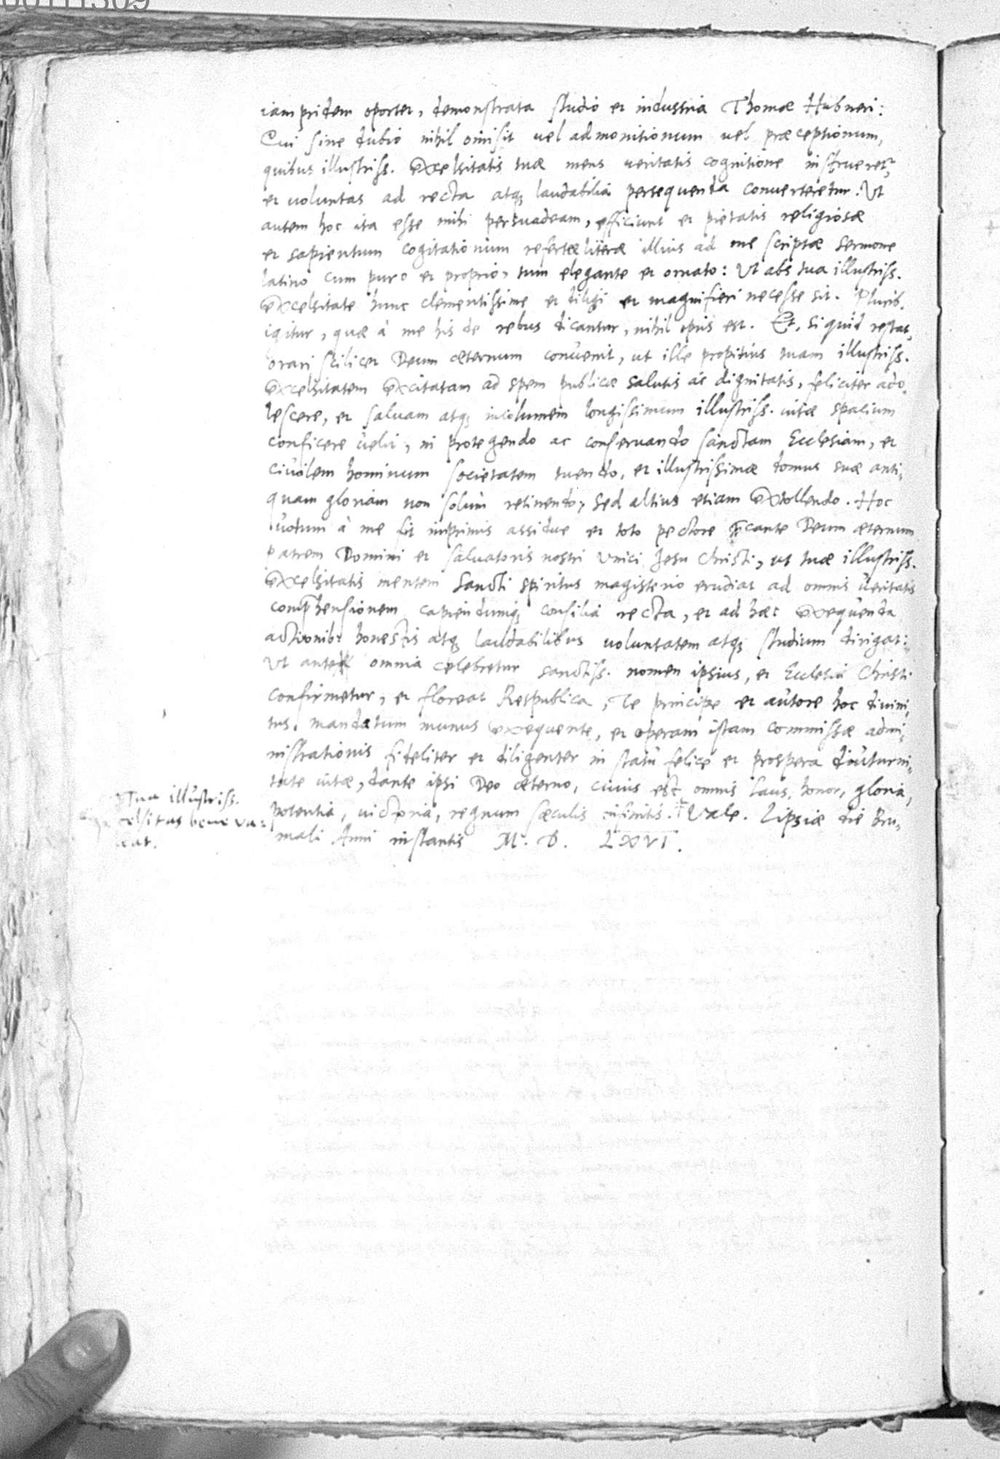 iampridem oportet, demonstrata studio et industria Thomæ Hubneri:
Cui sine dubio nihil omisit uel admonitionum uel præceptionum,
quibus illustriss. Excelsitatis tuæ mens ueritatis cognitione instrueret,
et uoluntas ad recta atq; laudabilia persequenda conuerteretur. Ut
autem hoc ita esse mihi persuadeam, efficiunt et pietatis religiosæ
et sapientum cogitationum refertæ literæ illius ad me scriptæ sermone
latino cum puro et proprio, tum elegante et ornato: Ut abs tua illustriss.
Excelsitate hunc clementissime et diligi et magnifieri necesse sit. Plurib.
igitur, quæ à me his de rebus dicantur, nihil opus est. Et, siquid restat,
orari scilicet Deum æternum conuenit, ut ille propitius tuam illustriss.
Excelsitatem excitatam ad spem publicæ salutis ac dignitatis, feliciter ado,
lescere, et saluam atq; incolumem longissimum illustriss. uitæ spacium
conficere uelit, in protegendo ac conseruando sanctam Ecclesiam, et
ciuilem hominum societatem tuendo, et illustrissimæ domus suæ anti,
quam gloriam non solum retinendo, sed altius etiam extollendo. Hoc
uotum à me fit inprimis assidue et toto pectore p̄cante Deum æternum
patrem Domini et saluatoris nostri unici Jesu Christi, ut tuæ illustriss.
Excelsitatis mentem sancti spiritus magisterio erudiat ad omnis ueritatis
comp̄hensionem, capiendumq; consilia recta, et ad hæc exequenda
actionib. honestis atq; laudabilibus uoluntatem atq; studium dirigat:
Ut ante omnia celebretur sanctiss. nomen ipsius, et Ecclesia Christi
confirmetur, et floreat Respublica, Te principe et autore hoc diuini,
tus mandatum munus exequente, et operam istam commissæ admi,
nistrationis fideliter et diligenter in statu felice et prospera diuturni,
tate uitæ, dante ipsi Deo æterno, cuius est omnis laus, honor, gloria,
potentia, uictoria, regnum sæculis infinitis. † Vale. Lipsiæ die Bru,
mali Anni instantis M. D. LXVI.
Tua illustriss.
Excelsitas bene ua,
leat.